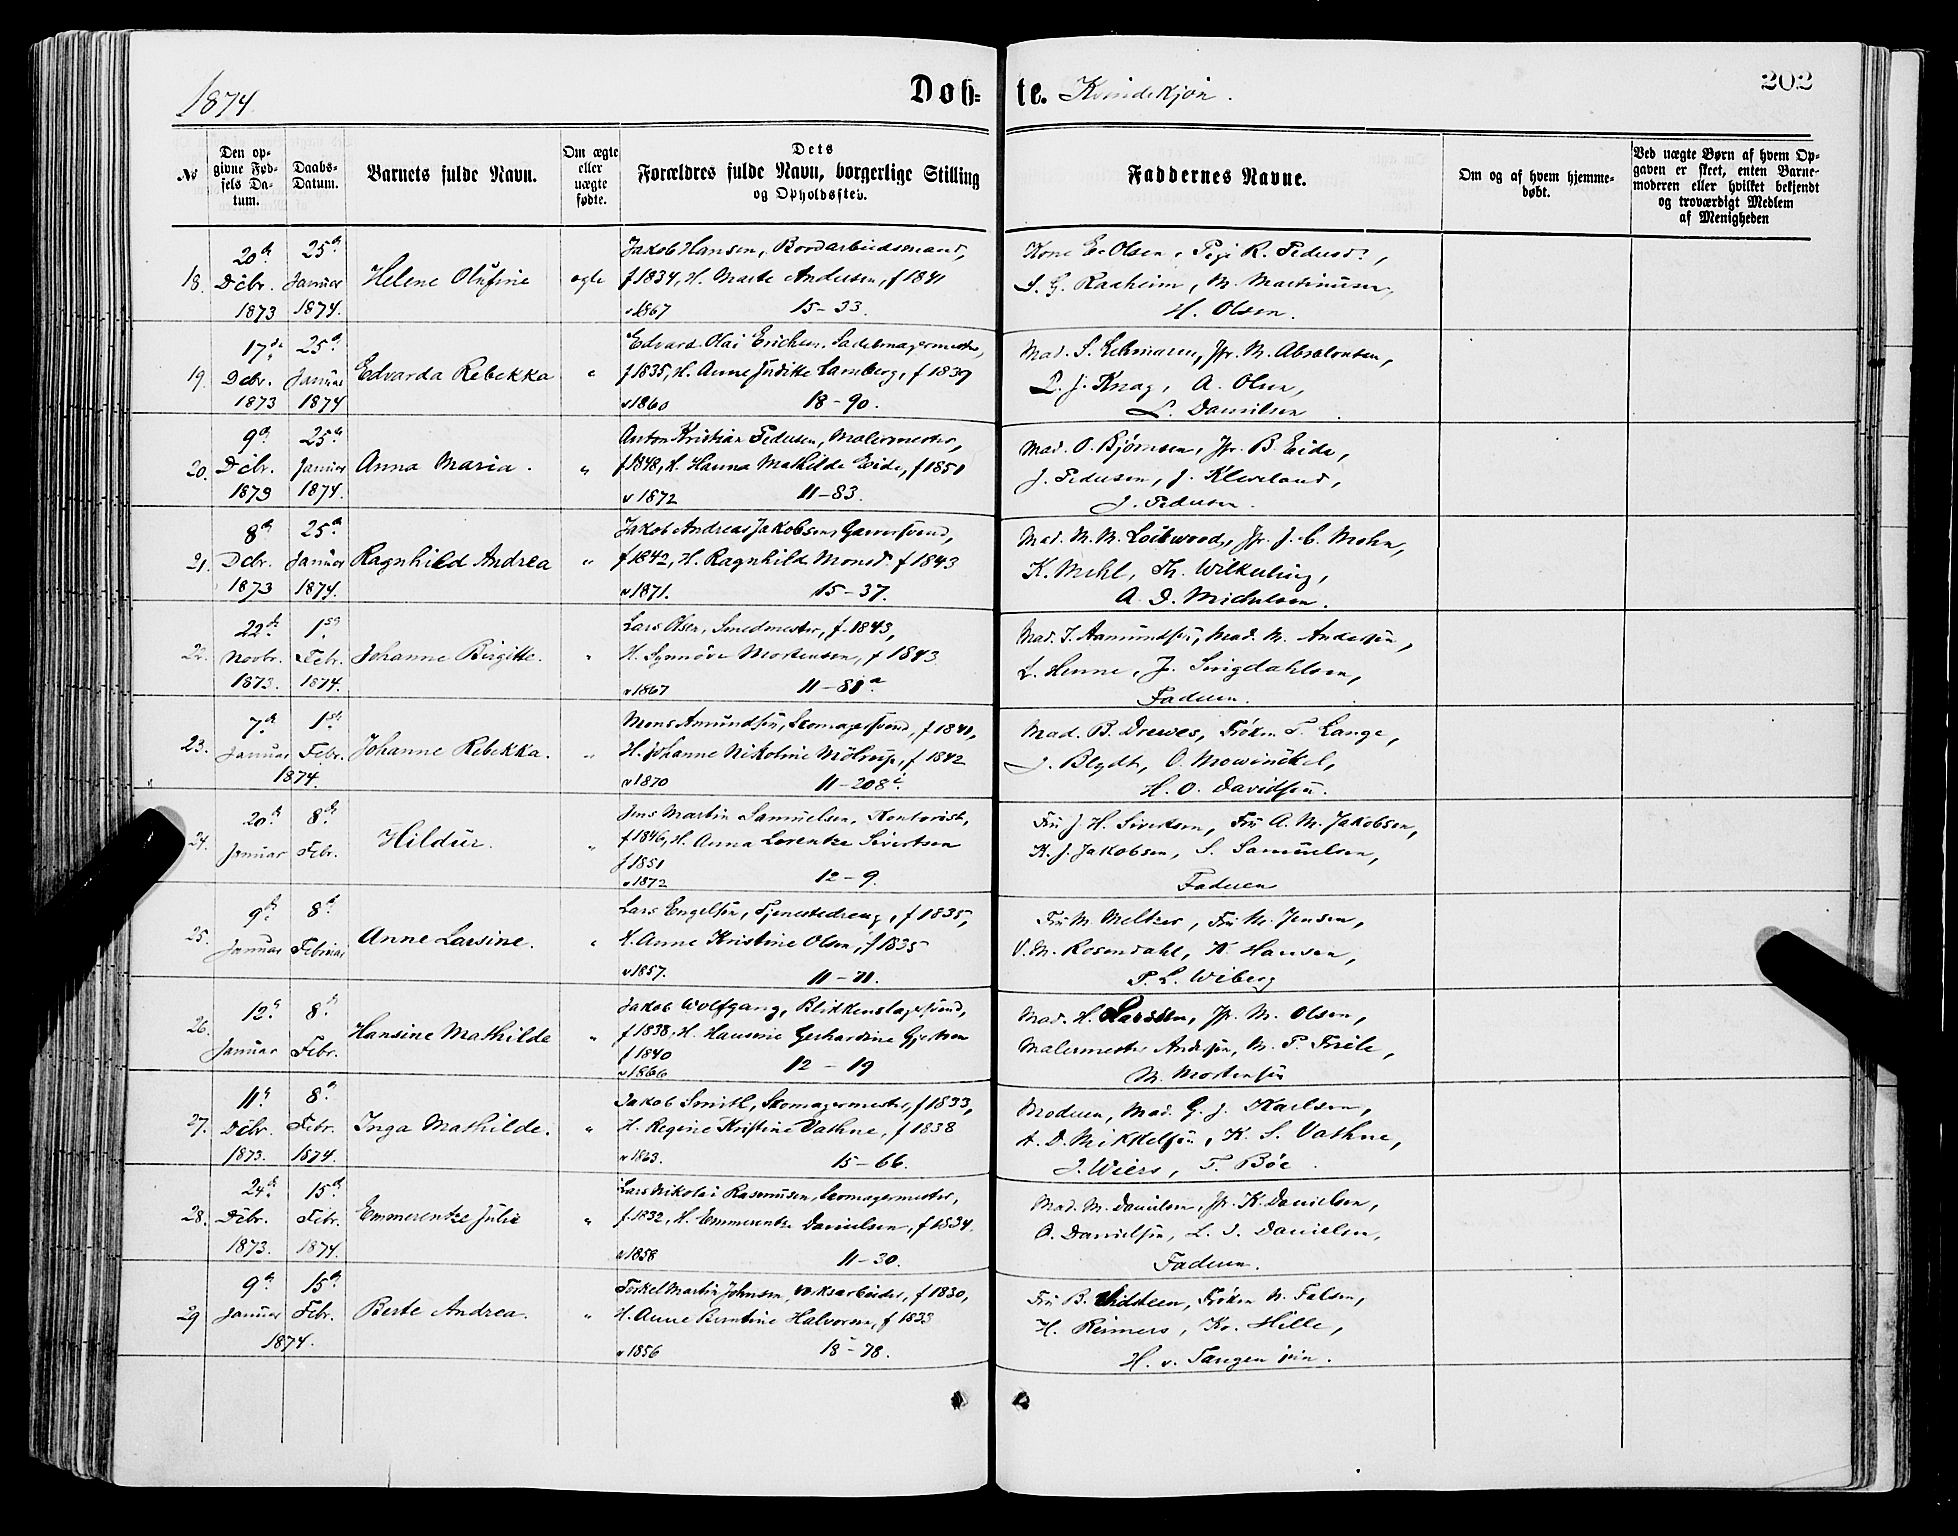 1874.
Døb=te. Kvindekjøn.
202
No
Den opgivne Fødsels Datum.
Daabs-Datum.
Barnets fulde Navn.
Om ægte eller uægte fødte.
Dets Forældres fulde Navn, borgerlige Stilling og Opholdssted.
Faddernes Navne.
Om og af hvem hjemmedøbt.
Ved uægte Børn af hvem Opgaven er skeet, enten Barnemoderen eller hvilket bekjendt og troværdigt Medlem af Menigheden
18. 20de Dcbr. 1873 25de Januar 1874. Helene Olufine ægte
Jakob Hansen, Bordarbeidsmand,
f 1834, H. Marte Andersen, f 1841
v 1867 15-33.
Kone E. Olsen, Pige R. Pedersd.,
S. G. Raaheim, M. Martinusen,
H. Olsen.
19. 17de Dcbr. 1873 25de Januar 1874 Edvarda Rebekka "
Edvard Olai Erichsen, Sadelmagermester,
f 1835, H. Anne Juditte Lamberg, f 1839
v 1860 18-90.
Mad. S. Lehmann, Jfr. M. Absalonsen,
P. J. Knag, A. Olsen,
L. Danielsen
20. 9de Dcbr. 1873 25de Januar 1874. Anna Maria. "
Anton Kristian Pedersen, Malermester,
f 1848, H. Hanna Mathilde Eide, f 1851
v 1872 11-83.
Mad. O. Bjørnsen, Jfr. B. Eide,
J. Pedersen, J. Kleveland,
J. Pedersen.
21. 8de Dcbr. 1873 25de Januar 1874. Ragnhild Andrea "
Jakob Andreas Jakobsen, Garversvend,
f 1842, H. Ragnhild Monsd. f 1843
v 1871. 15-37.
Mad. M. M. Loitwood, Jfr. J. C. Mohn,
K. Mehl, Th. Wilkerling,
A. D. Michelsen.
22. 22de Novbr. 1873. 1ste Febr. 1874. Johanne Birgitte. "
Lars Olsen, Smedmester, f. 1843,
H. Synnøve Mortensen, f 1843
v 1867 11-81a
Mad. I. Aamundsen, Mad. M. Andersen,
L. Henne, J. Sirigdahlsen,
Faderen.
23. 7de Januar 1ste Febr. 1874. Johanne Rebekka. "
Mons Amundsen, Skomagersvend, f 1841,
H. Johanne Nikoline Möltrup, f 1842
v 1870 11-208c
Mad. B. Drewes, Frøken T. Lange,
J. Blydt, O. Mowinckel,
H. O. Davidsen.
24. 20de Januar 8de Febr. Hildur. "
Jens Martin Samuelsen, Kontorist,
f 1846, H. Anna Lorentze Sivertsen
f 1851
v 1872 12-9.
Fru J. H. Sivertsen, Fru A. M. Jakobsen,
K. J. Jakobsen, S. Samuelsen,
Faderen
25. 9de Januar 8de Februar Anne Larsine. "
Lars Engelsen, Tjenestedreng, f 1835,
H. Anne Kristine Olsen, f 1835
v 1857. 11-71.
Fru M. Meltzer, Fru M. Jensen,
V. M. Rosendahl, K. Hansen,
P. L. Wiberg
26. 12te Januar 8de Febr. Hansine Mathilde "
Jakob Wolfgang, Blikkenslagersvend,
f 1838, H. Hansine Gerhardine Gjertsen
f 1840
v 1866 12-19
Mad. H. Larssen, Jfr. M. Olsen,
Malermester Andersen, M. P. Friele,
M. Mortensen
27. 11te Dcbr. 1873. 8de Febr. 1874. Inga Mathilde. "
Jakob Smith, Skomagermester, f 1833,
H. Regine Kristine Vathne, f 1838
v 1863. 15-66.
Moderen, Mad. G. J. Karlsen,
A. D. Mikkelsen, K. S. Vathne,
J. Wiers, T. Böe.
28. 24de Dcbr. 1873. 15de Febr. 1874. Emmerentze Julie "
Lars Nikolai Rasmusen, Skomagermester,
f. 1832, H. Emmerentze Danielsen, f 1834.
v 1858 11-30.
Mad. M. Danielsen, Jfr. K. Danielsen,
O. Danielsen, L. I. Danielsen,
Faderen.
29 9de Januar 15de Febr. 1874. Berte Andrea. "
Torkel Martin Johnsen, Verksarbeider, f 1830,
H. Anne Berntine Halvorsen, f 1833
v 1856 18-78.
Fru B. Vidsteen, Frøken M. Falsen,
H. Reimers, Kr. Hille,
H. v. Tangen jun.